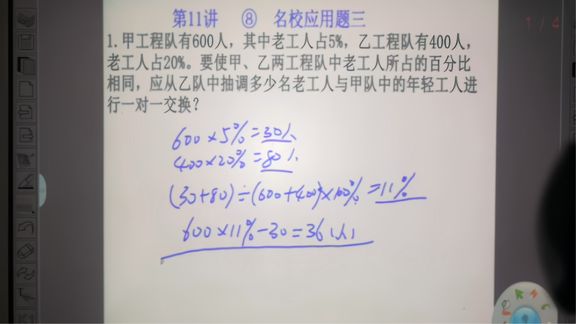 第11讲 ⑧ 名校应用题三
1 / 4
1.甲工程队有600人，其中老工人占5%，乙工程队有400人，
老工人占20%。要使甲、乙两工程队中老工人所占的百分比
相同，应从乙队中抽调多少名老工人与甲队中的年轻工人进
行一对一交换？
600×5%=30人
400×20%=80人
(30+80)÷(600+400)×100%=11%
600×11%-30=36(人)